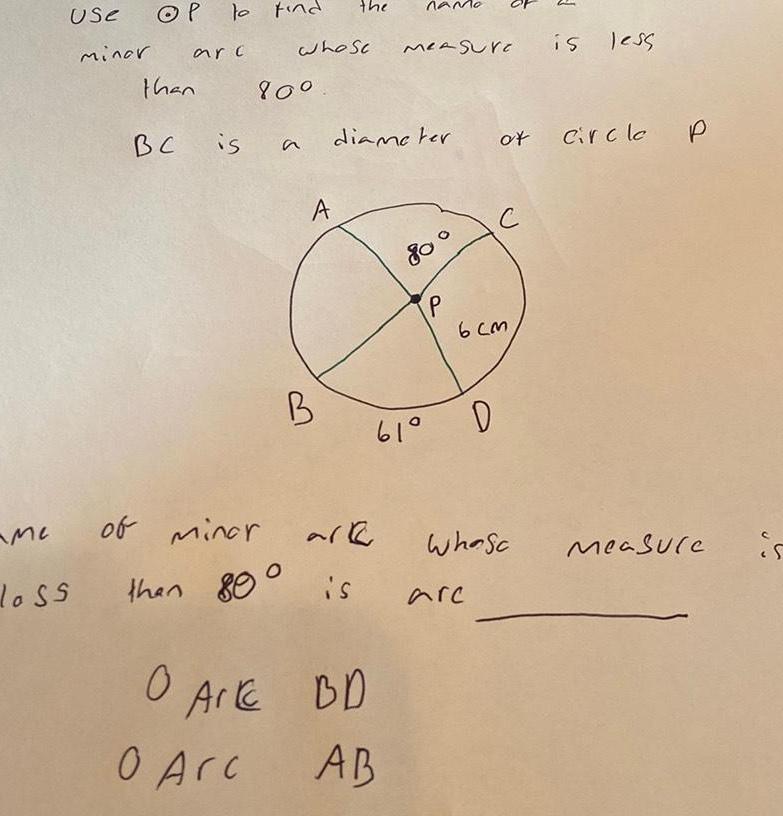 Use ⊙P to find the name of a
minor arc whose measure is less
than 80°.
BC is a diameter of circle P
A
C
80°
P
6 cm
B
D
61°
of minor arc whose measure is
less than 80° is arc ________
O Arc BD
O Arc AB